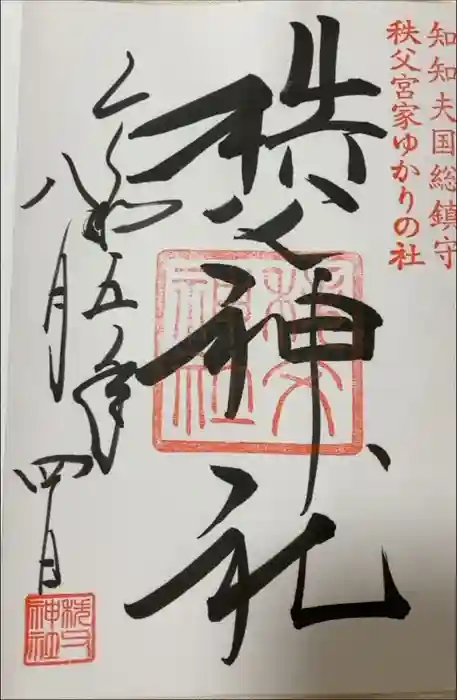 知知夫国総鎮守
秩父宮家ゆかりの社
秩父神社
秩父
神社
令和五年
八月四日
秩父
神社